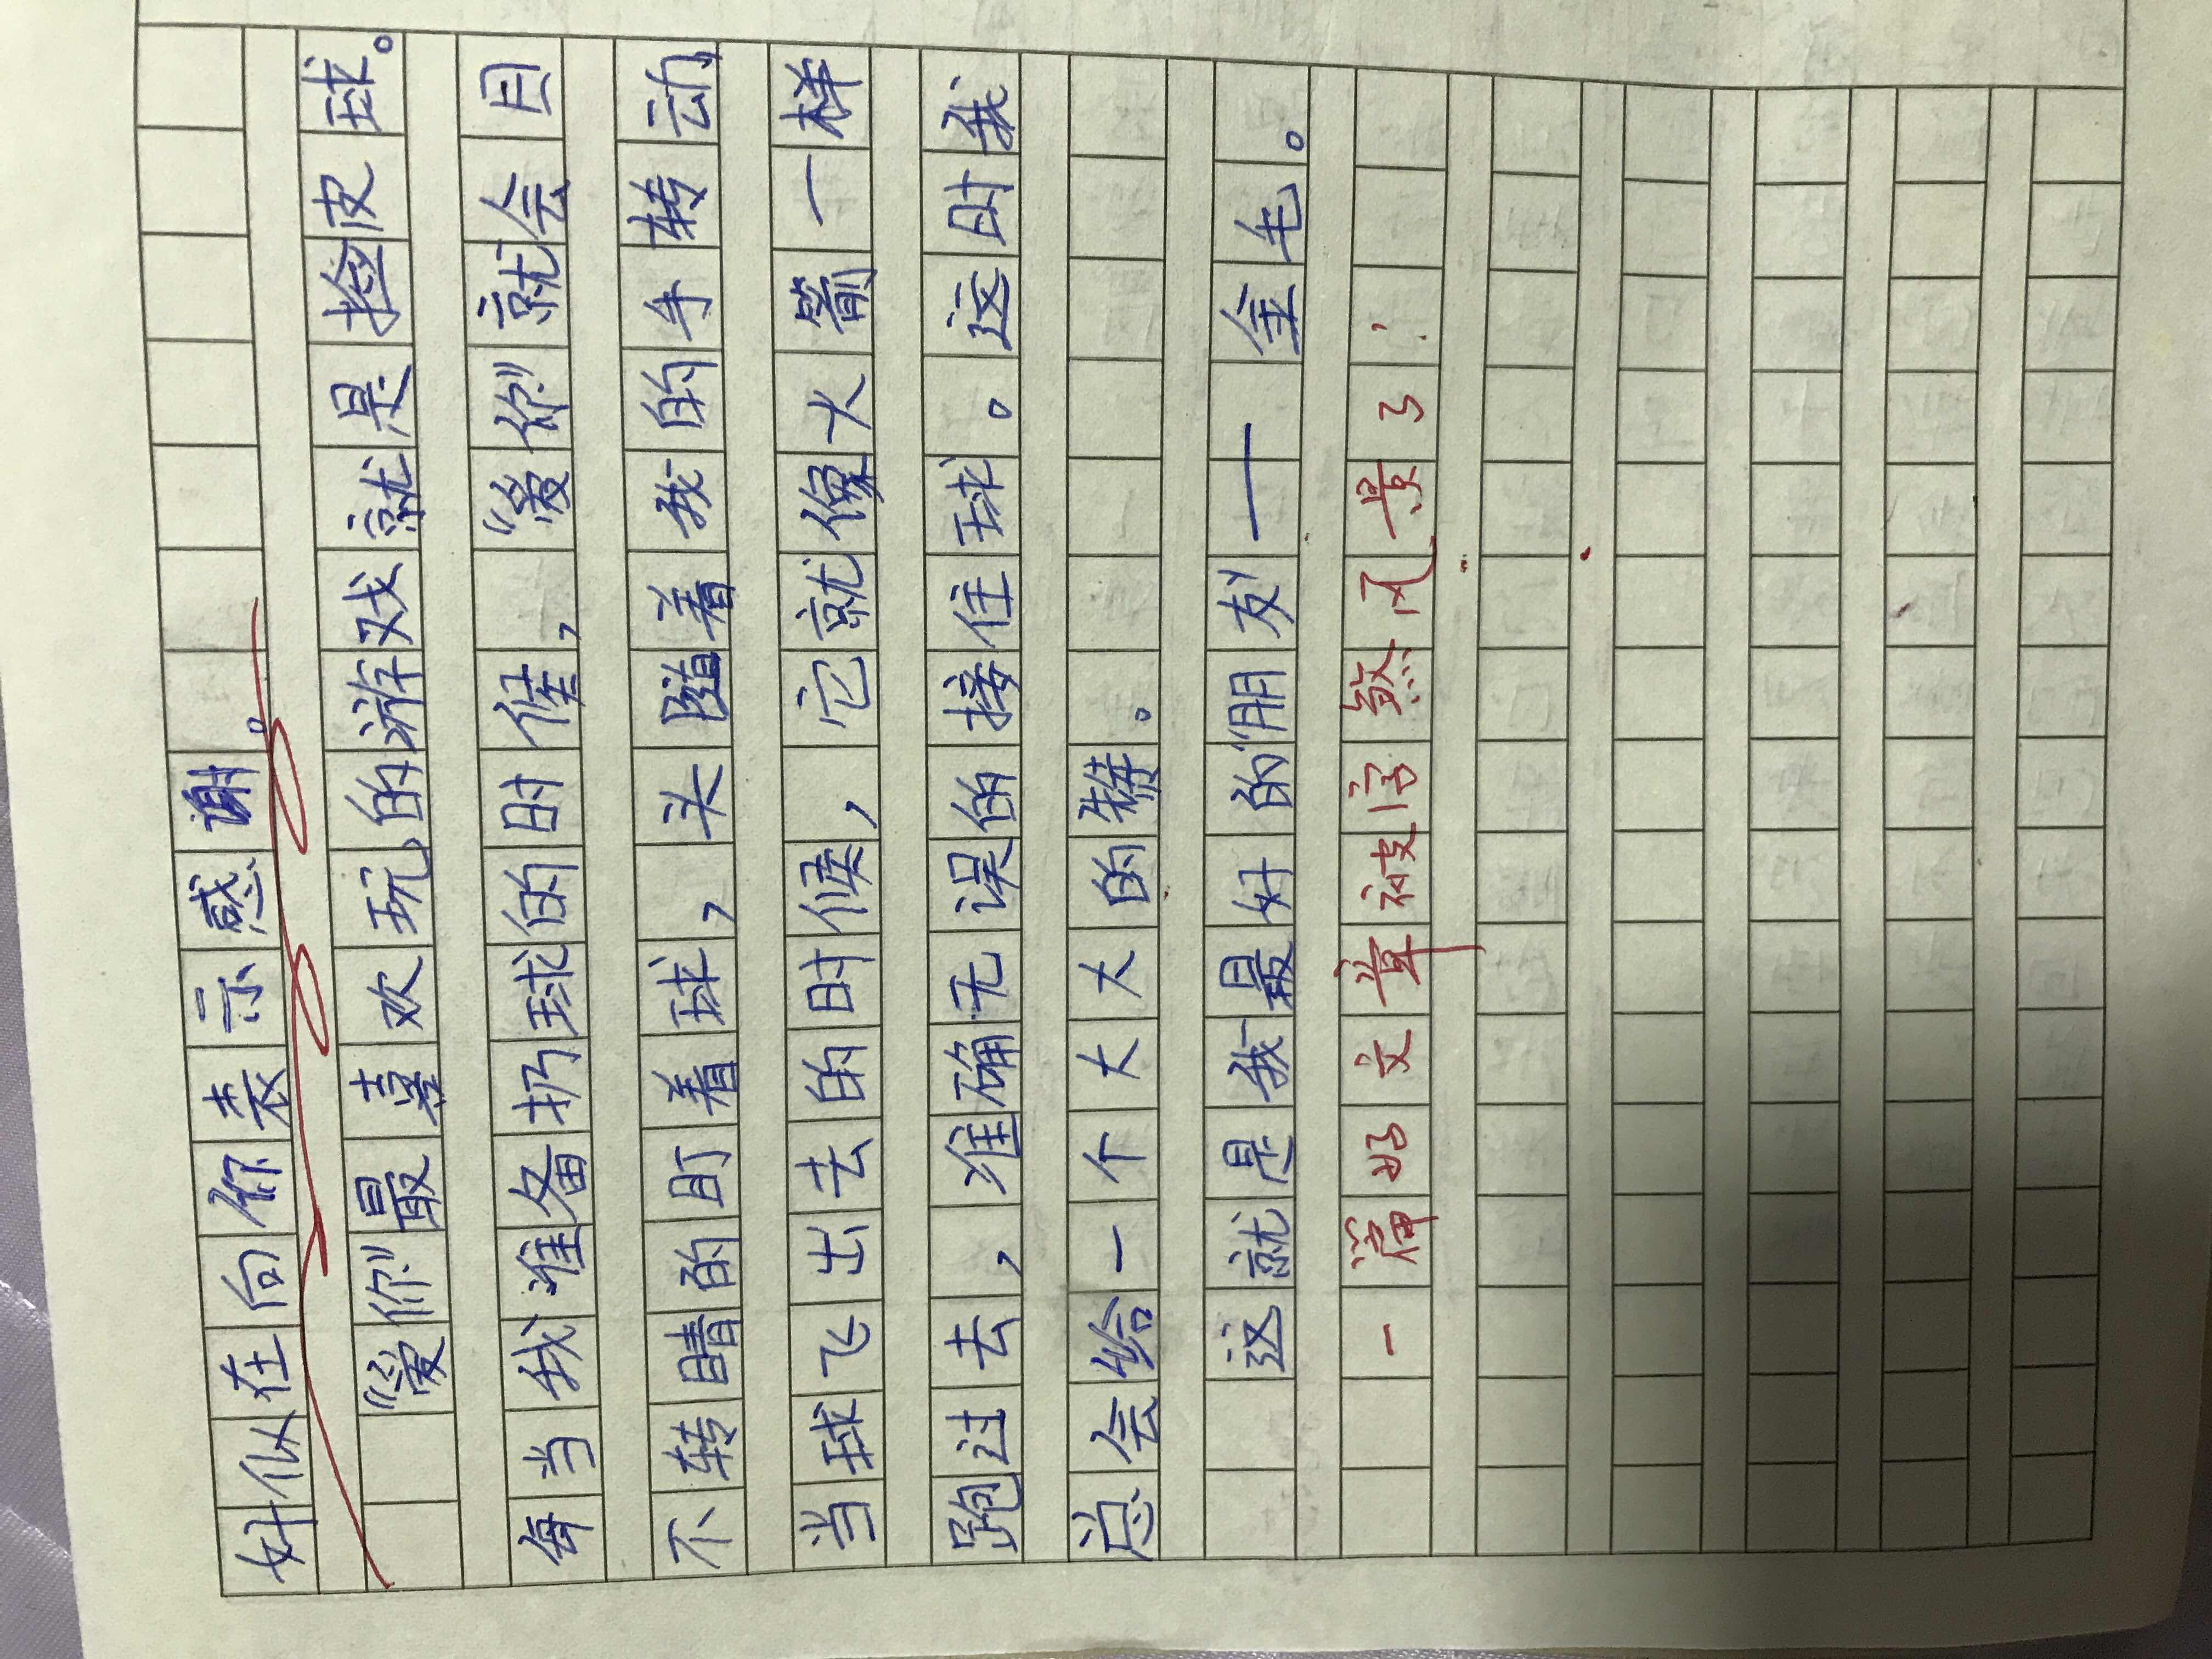 好似在向你表示感谢。
“爱你”最喜欢玩的游戏就是捡皮球。
每当我准备扔球的时候,“爱你”就会目
不转睛的盯着球,头随着我的手转动
当球飞出去的时候,它就像火箭一样
跑过去,准确无误的接住球。这时我
总会给一个大大的赞。
这就是我最好的“朋友”——金毛。
一篇好文章被字煞风景了!